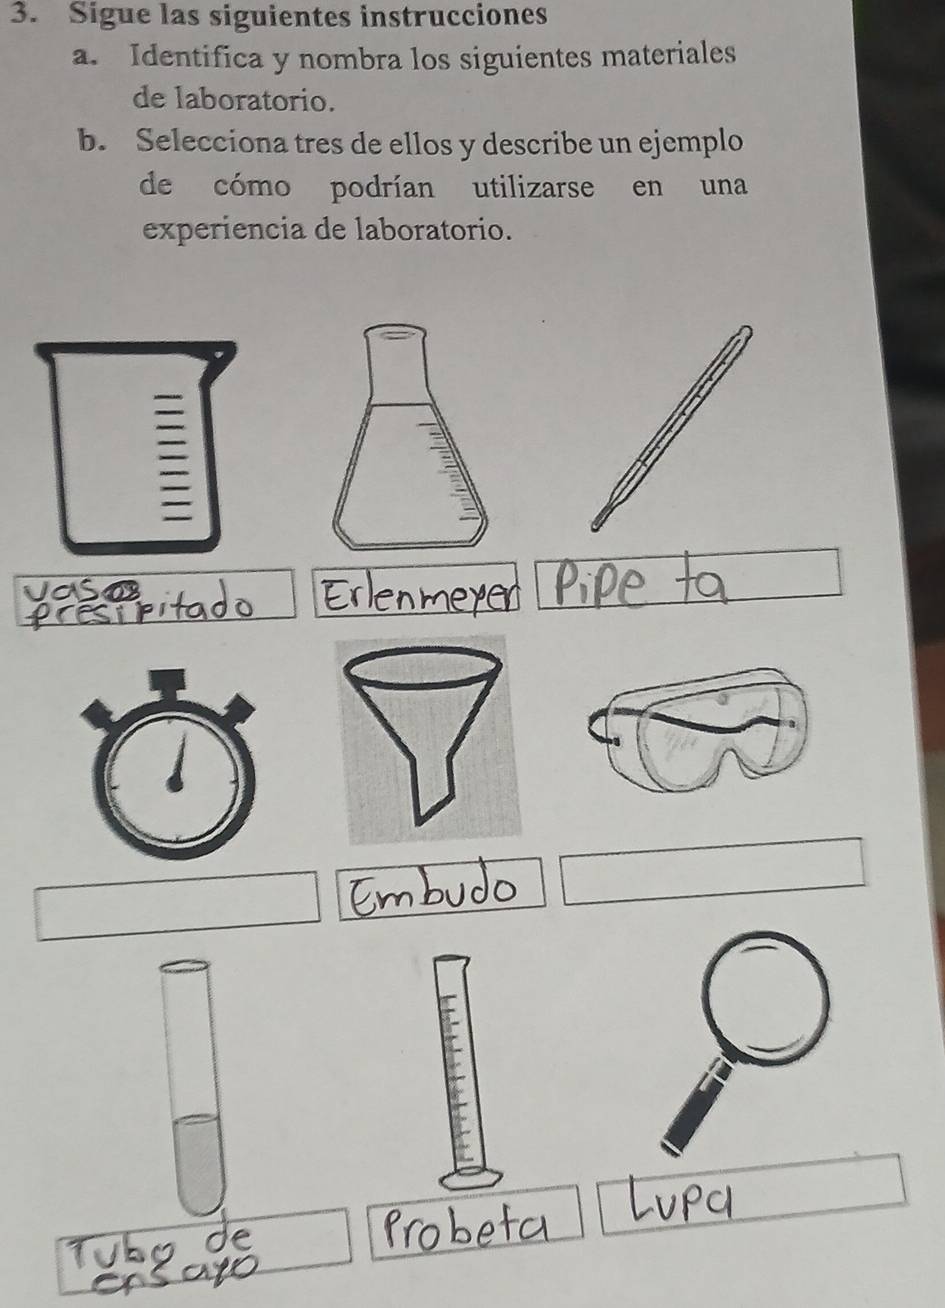 3. Sigue las siguientes instrucciones
a. Identifica y nombra los siguientes materiales
de laboratorio.
b. Selecciona tres de ellos y describe un ejemplo
de cómo podrían utilizarse en una
experiencia de laboratorio.
vasos
presipitado
Erlenmeyer
Pipe ta
Embudo
Tubo de
ensayo
Probeta
Lupa